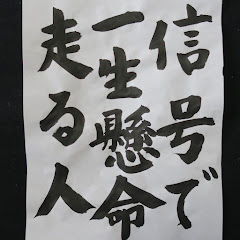 信号で
一生懸命
走る人